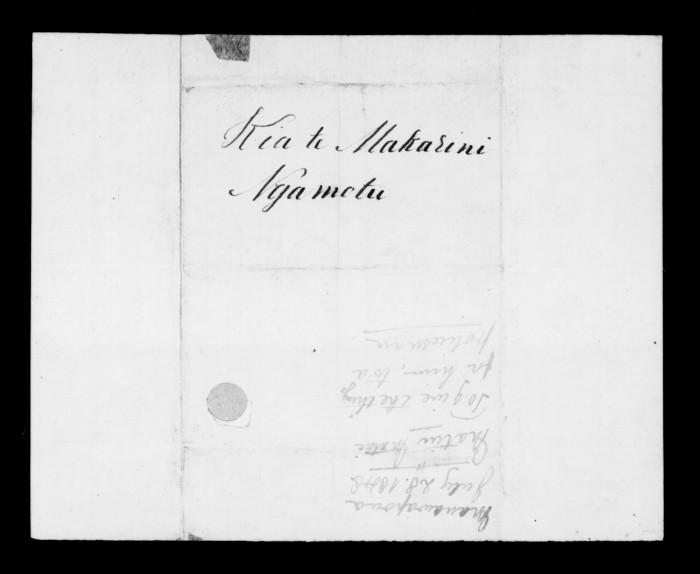 Kia te Makarini
Ngamotu
Manawapowa
July 28. 1848
Matiu
To give the things
for him, to a
policeman